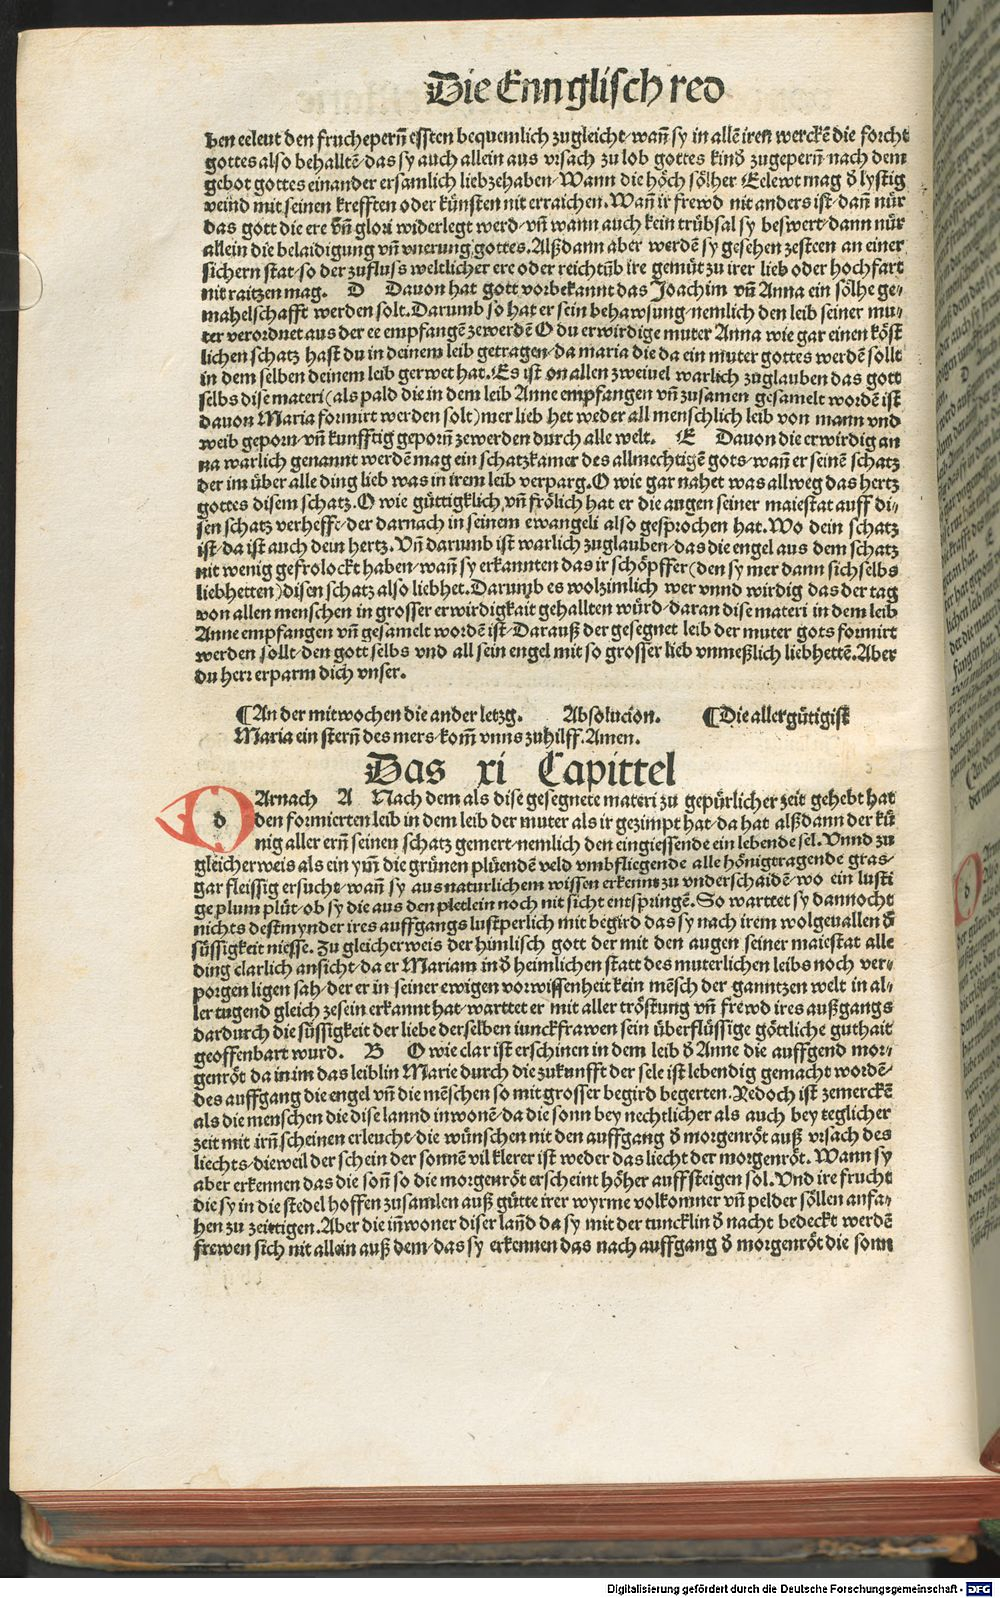 Die Ennglisch red
ben eeleut den fruchepern̄ essten bequemlich zugleicht/wañ sy in allē iren werckē die forcht
gottes also behalltē/das sy auch allein aus vrsach zu lob gottes kind zugepern̄ nach dem
gebot gottes einander ersamlich liebzehaben/Wann die höch sölher Eelewt mag đ lystig
veind mit seinen krefften oder künsten nit erraichen.Wañ ir frewd nit anders ist/dañ nür
das gott die ere vñ glori widerlegt werd/vñ wann auch kein trübsal sy beswert/dann nür
allein die belaidigung vñ vnerung gottes.Alßdann aber werdē sy gesehen zesteen an einer
sichern stat/so der zufluss weltlicher ere oder reichtūb ire gemüt zu irer lieb oder hochfart
nit raitzen mag. D Dauon hat gott vorbekannt das Joachim vñ Anna ein sölhe ge-
mahelschafft werden solt.Darumb so hat er sein behawsung/nemlich den leib seiner mu-
ter verordnet aus der ee empfangē zewerdē O du erwirdige muter Anna wie gar einen köst
lichen schatz hast du in deinem leib getragen/da maria die da ein muter gottes werdē sollt
in dem selben deinem leib gerwet hat.Es ist on allen zweiuel warlich zuglauben das gott
selbs dise materi(als pald die in dem leib Anne empfangen vñ zusamen gesamelt wordē ist
dauon Maria formirt werden solt)mer lieb het weder all menschlich leib von mann vnd
weib geporn/vñ kunfftig geporn̄ zewerden durch alle welt. E Dauon die erwirdig an
na warlich genannt werdē mag ein schatzkamer des allmechtigē gots/wañ er seinē schatz
der im über alle ding lieb was in irem leib verparg.O wie gar nahet was allweg das hertz
gottes disem schatz.O wie güttigklich vñ frölich hat er die augen seiner maiestat auff di-
sen schatz verhefft/der darnach in seinem ewangeli also gesprochen hat.Wo dein schatz
ist/da ist auch dein hertz.Vñ darumb ist warlich zuglauben/das die engel aus dem schatz
nit wenig gefrolockt haben/wañ sy erkannten das ir schöpffer(den sy mer dann sich selbs
liebhetten)disen schatz also liebhet.Darumb es wolzimlich wer vnnd wirdig das der tag
von allen menschen in grosser erwirdigkait gehallten würd/daran dise materi in dem leib
Anne empfangen vñ gesamelt wordē ist/Darauß der gesegnet leib der muter gots formirt
werden sollt/den gott selbs vnd all sein engel mit so grosser lieb vnmeßlich liebhettē.Aber
du herr erparm dich vnser.
¶An der mitwochen die ander letzg. Absolucion. ¶Die allergütigist
Maria ein stern̄ des mers/kom̄ vnns zuhilff.Amen.
Das xi Capittel
dArnach A Nach dem als dise gesegnete materi zu gepürlicher zeit gehebt hat
den formierten leib in dem leib der muter als ir gezimpt hat/da hat alßdann der kü
nig aller ern̄ seinen schatz gemert/nemlich den eingiessende ein lebende sel.Vnnd zu
gleicherweis als ein ym̄ die grünen plüendē veld vmbfliegende alle hönigtragende gras-
gar fleissig ersucht/wañ sy aus naturlichem wissen erkennt zu vnderschaidē/wo ein lusti
ge plum plüt/ob sy die aus den pletlein noch nit sicht entspringē.So warttet sy dannocht
nichts destmynder ires auffgangs lustperlich mit begird das sy nach irem wolgeuallen đ
süssigkeit niesse.Zu gleicherweis der himlisch gott der mit den augen seiner maiestat alle
ding clarlich ansicht/da er Mariam in đ heimlichen statt des muterlichen leibs noch ver-
porgen ligen sah/der er in seiner ewigen vorwissenheit kein mēsch der ganntzen welt in al-
ler tugend gleich zesein erkannt hat/warttet er mit aller tröstung vñ frewd ires außgangs
dardurch die süssigkeit der liebe derselben iunckfrawen sein überflüssige göttliche guthait
geoffenbart wurd. B O wie clar ist erschinen in dem leib đ Anne die auffgend mor-
genröt da in im das leiblin Marie durch die zukunfft der sele ist lebendig gemacht wordē/
des auffgang die engel vñ die mēschen so mit grosser begird begerten.Yedoch ist zemerckē
als die menschen die dise lannd inwonē/da die sonn bey nechtlicher als auch bey teglicher
zeit mit irn̄ scheinen erleucht/die wünschen nit den auffgang đ morgenröt auß vrsach des
liechts/dieweil der schein der sonnē vil klerer ist weder das liecht der morgenröt.Wann sy
aber erkennen das die son̄ so die morgenröt erscheint höher auffsteigen sol.Vnd ire frucht
die sy in die stedel hoffen zusamlen auß gütte irer wyrme volkomner vñ pelder söllen anfa-
hen zu zeittigen.Aber die iñwoner diser lañd da sy mit der tuncklin đ nacht bedeckt werdē
frewen sich nit allein auß dem/das sy erkennen das nach auffgang đ morgenröt die sonn
Digitalisierung gefördert durch die Deutsche Forschungsgemeinschaft - DFG